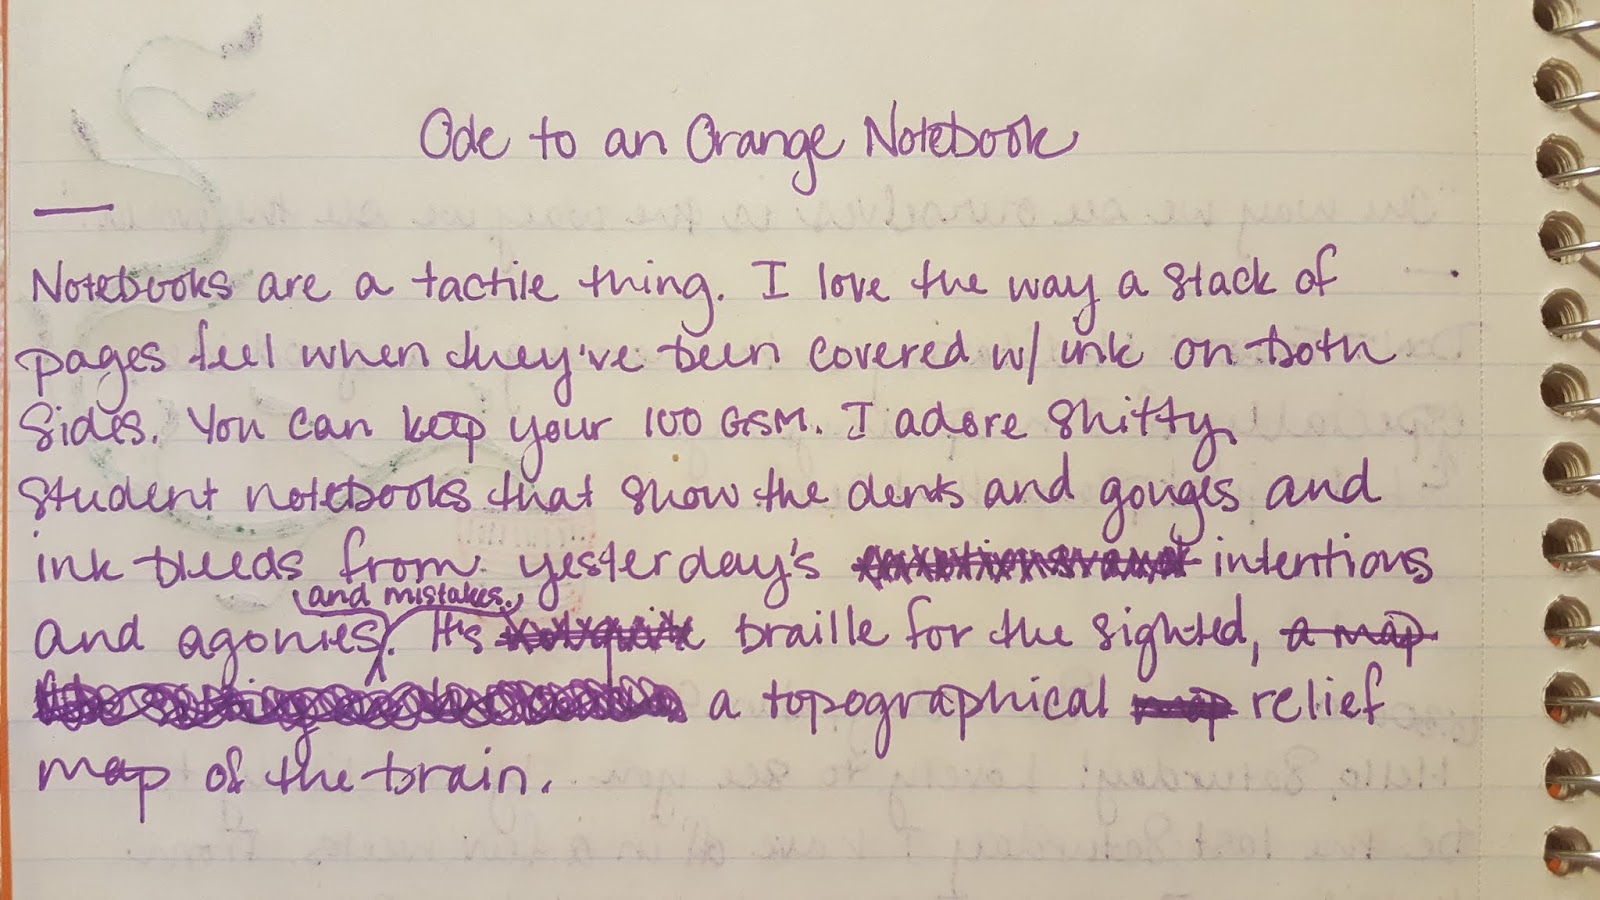 Ode to an Orange Notebook
Notebooks are a tactile thing. I love the way a stack of
pages feel when they've been covered w/ ink on both
sides. You can keep your 100 GSM. I adore shitty
student notebooks that show the dents and gouges and
ink bleeds from yesterday's intentions
and mistakes.
and agonies. It's braille for the sighted, a map
a topographical map relief
map of the brain.